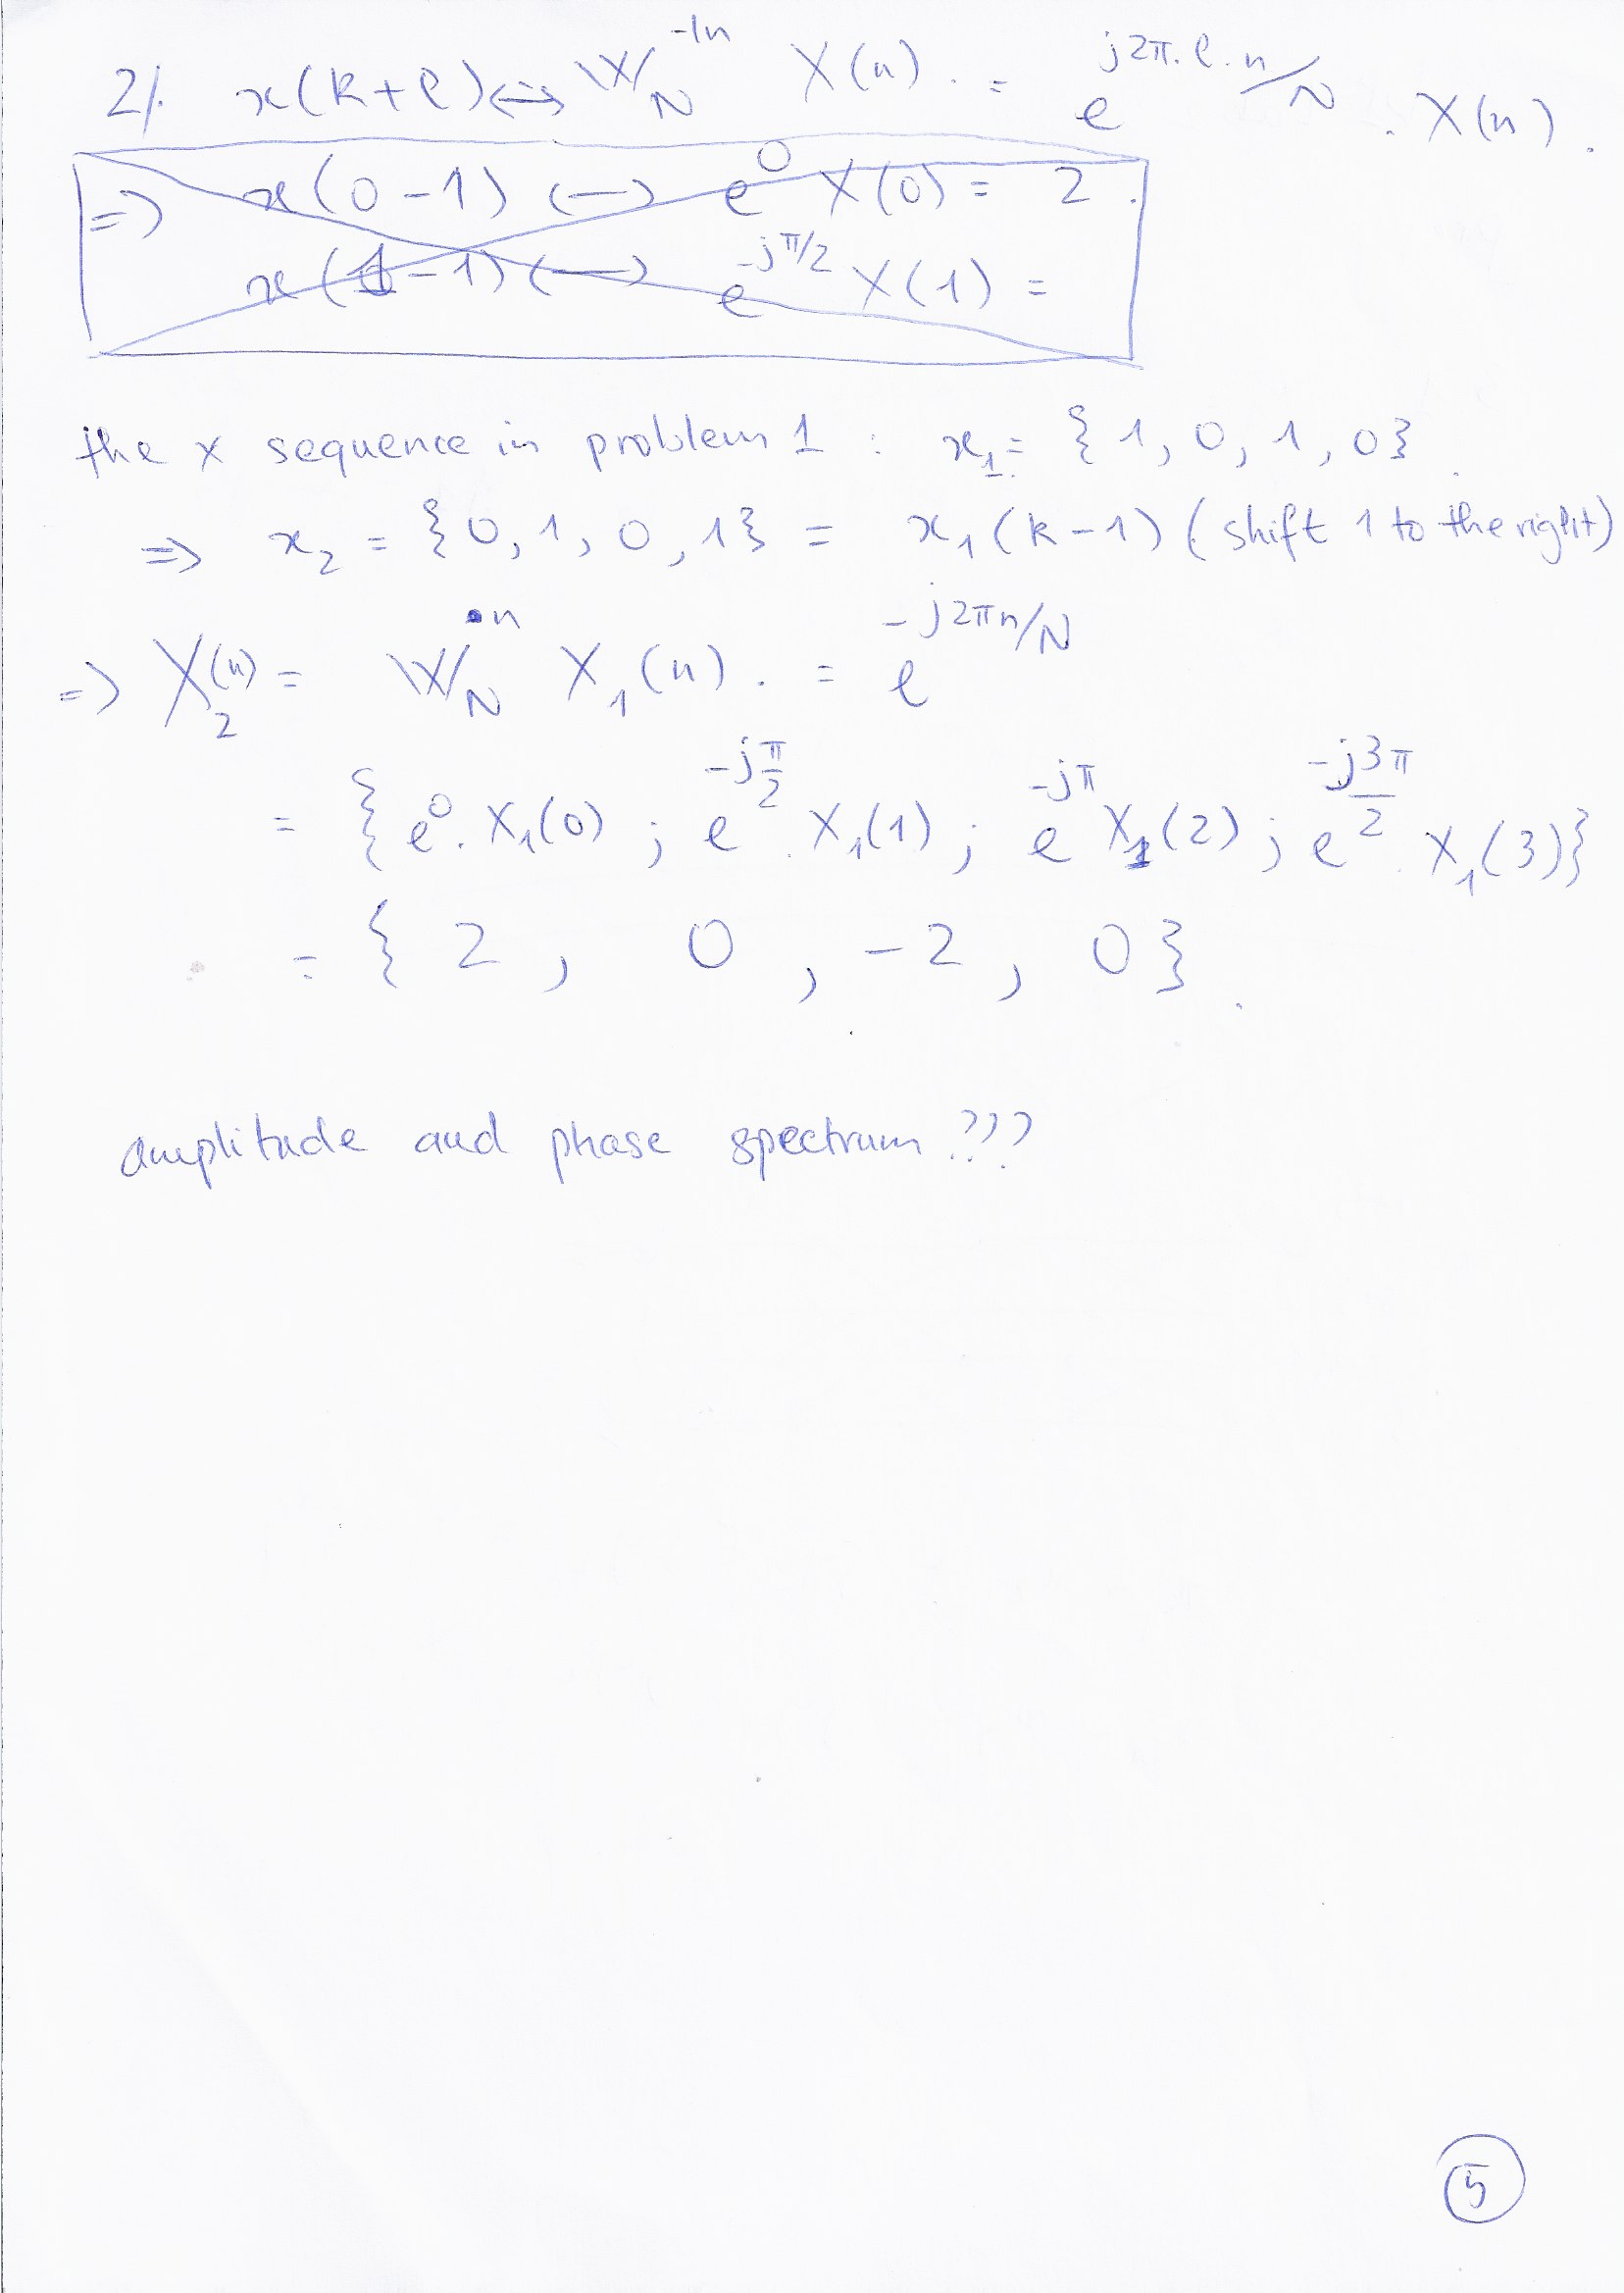 2/. x(k+l) <=> W_N^{-ln} X(n). = e^{j2π.l.n/N} . X(n).
=> x(0-1) <-> e^0 X(0) = 2.
x(1-1) <-> e^{-jπ/2} X(1) =
the x sequence in problem 1 : x_1 = {1, 0, 1, 0}.
=> x_2 = {0, 1, 0, 1} = x_1(k-1) (shift 1 to the right)
=> X_2(n) = W_N^n X_1(n). = e^{-j2πn/N}
= {e^0. X_1(0) ; e^{-jπ/2}. X_1(1) ; e^{-jπ} X_1(2) ; e^{-j3π/2}. X_1(3)}
= {2, 0, -2, 0}.
amplitude and phase spectrum ???
5